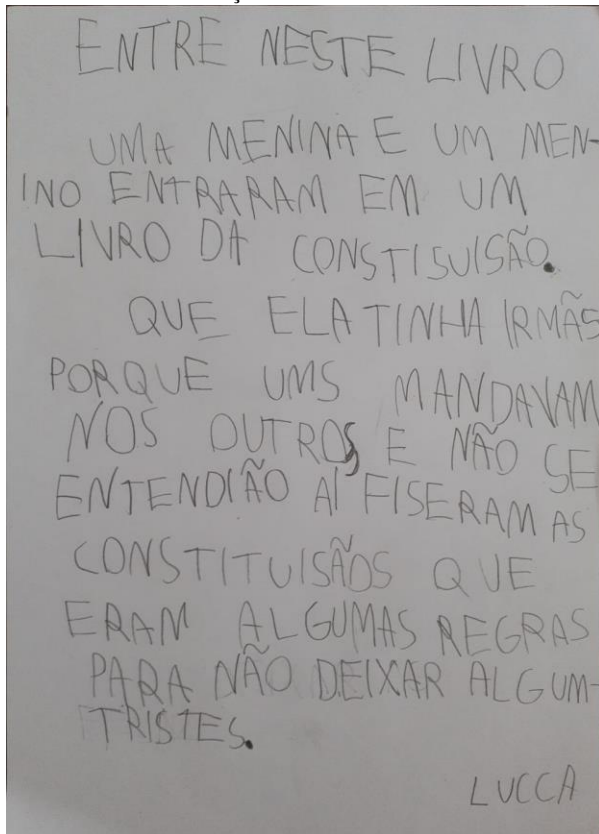 ENTRE NESTE LIVRO
UMA MENINA E UM MEN-
INO ENTRARAM EM UM
LIVRO DA CONSTISUISÃO.
QUE ELA TINHA IRMÃS
PORQUE UMS MANDAVAM
NOS OUTROS E NÃO SE
ENTENDIÃO AÍ FISERAM AS
CONSTITUISÃOS QUE
ERAM ALGUMAS REGRAS
PARA NÃO DEIXAR ALGUM-
TRISTES.
LUCCA